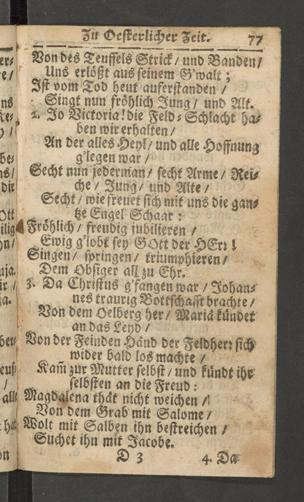 Zu Oesterlicher Zeit. 77
Von des Teuffels Strick / und Banden /
Uns erlößt aus seinem G'walt ;
Ist vom Tod heut auferstanden /
Singt nun fröhlich Jung / und Alt.
2. Jo Victoria! die Feld-Schlacht ha-
ben wir erhalten /
An der alles Heyl / und alle Hoffnung
g'legen war /
Secht nun jederman / secht Arme / Rei-
che / Jung / und Alte /
Secht / wie freuet sich mit uns die gan-
tze Engel Schaar :
Fröhlich / freudig jubilieren /
Ewig g'lobt sey GOtt der HErr !
Singen / springen / triumphieren /
Dem Obsiger all zu Ehr.
3. Da Christus g'fangen war / Johan-
nes traurig Bottschafft brachte /
Von dem Oelberg her / Mariä kündet
an das Leyd /
Von der Feinden Händ der Feldherr sich
wider bald los machte /
Kam̃ zur Mutter selbst / und kündt ihr
selbsten an die Freud :
Magdalena thät nicht weichen /
Von dem Grab mit Salome /
Wolt mit Salben ihn bestreichen /
Suchet ihn mit Jacobe.
D 3 4. Da